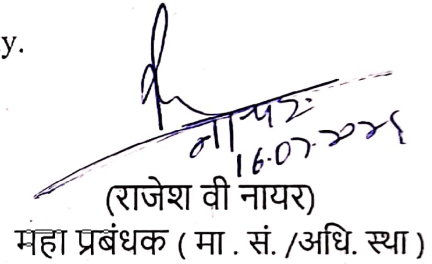 y.
नायर
16.07.2026
(राजेश वी नायर)
महा प्रबंधक ( मा . सं. /अधि. स्था )